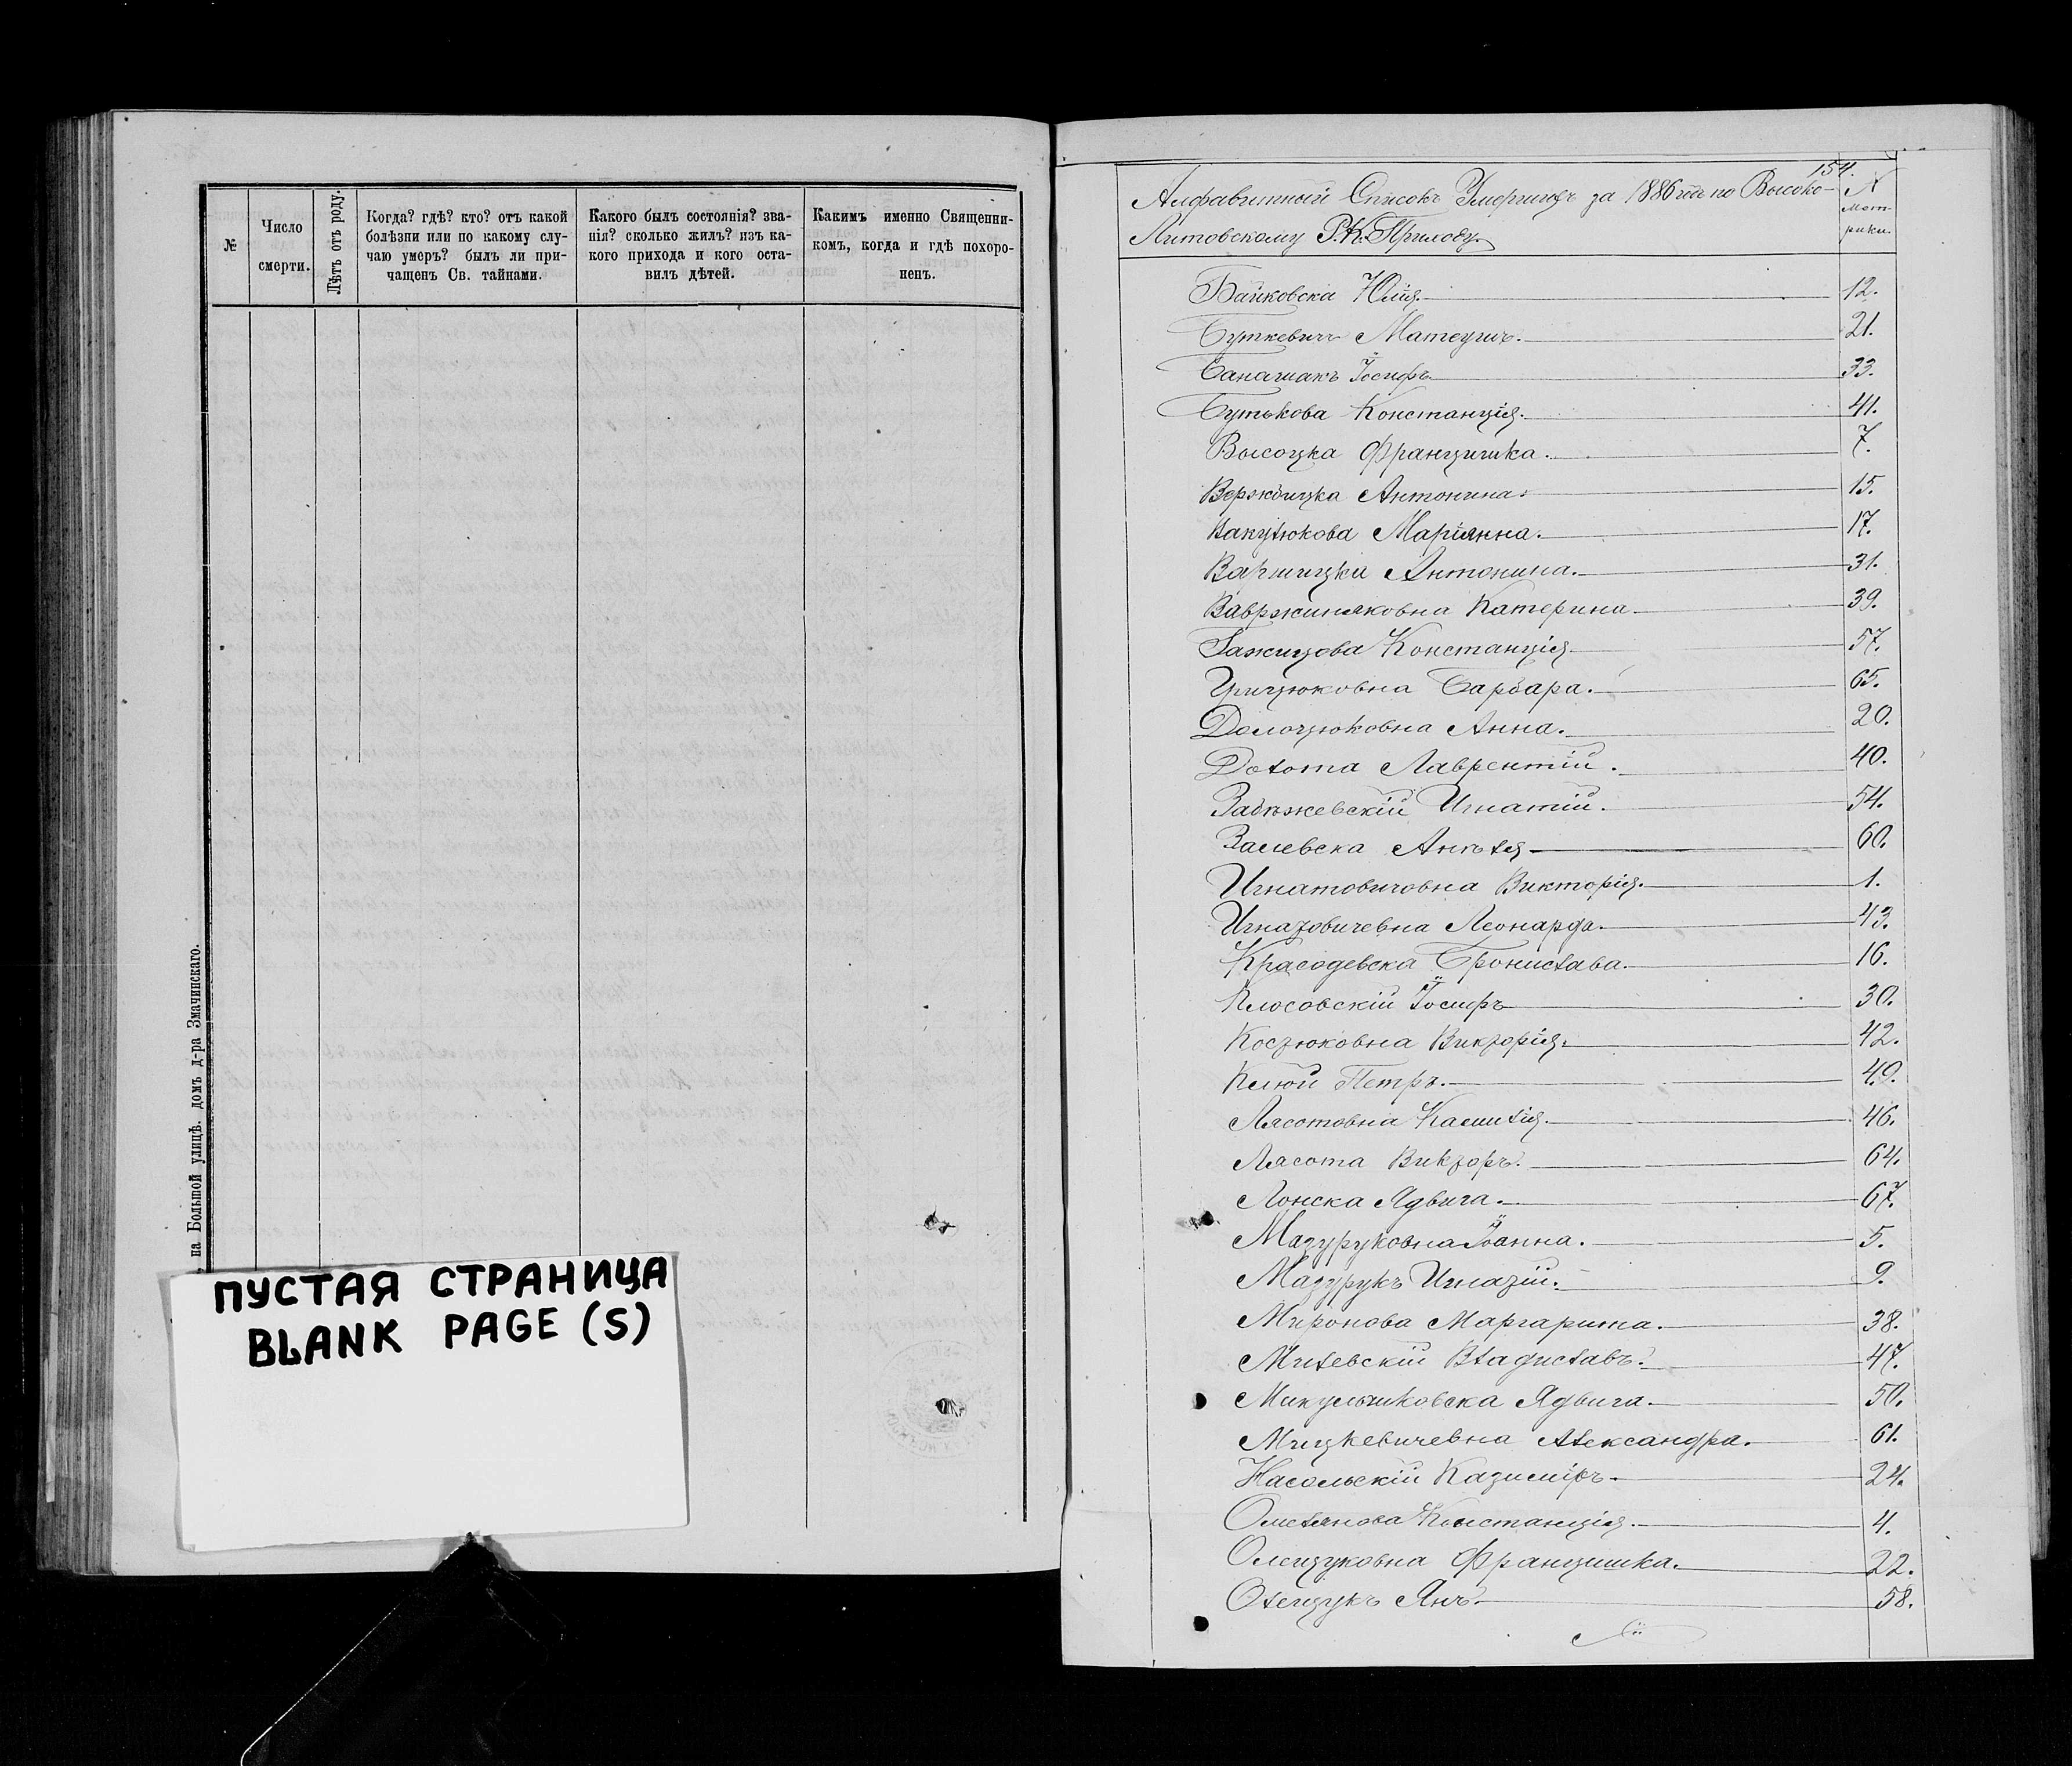 №
Число
смерти.
Лѣтъ отъ роду.
Когда? гдѣ? кто? отъ какой
болѣзни или по какому слу-
чаю умеръ? былъ ли при-
чащенъ Св. тайнами.
Какого былъ состоянія? зва-
нія? сколько жилъ? изъ ка-
кого прихода и кого оста-
вилъ дѣтей.
Какимъ именно Священни-
комъ, когда и гдѣ похоро-
ненъ.
на Большой улицѣ. домъ д-ра Змачинскаго.
ПУСТАЯ СТРАНИЦА
BLANK PAGE (S)
154.
Алфавитный Списокъ Умершихъ за 1886 годъ по Высоко-
Литовскому Р.К. Приходу.
№
Мет-
рики.
Байковска Юлія. 12.
Буткевичъ Матеушъ. 21.
Банашакъ Іосифъ 33.
Бутькова Констанція. 41.
Высоцка Францишка. 7.
Вержбицка Антонина 15.
Вакулюкова Маріянна. 17.
Варшицка Антонина. 31.
Вавржиняковна Катерина 39.
Гажицова Констанція 57.
Грицюковна Барбара. 65.
Антонина Анна. 20.
Долота Лаврентій. 40.
Забѣжевскій Игнатій. 54.
Залевска Анѣля 60.
Игнатовичовна Викторія. 1.
Игнатовичевна Леонарда. 43.
Красодевска Бронислава. 16.
Клосовскій Іосифъ 30.
Костюковна Викторія. 42.
Клюй Петръ. 49.
Лясотовна Камилія. 46.
Лясота Викторъ. 64.
Лонска Ядвига. 67.
Мазуруковна Іоанна. 5.
Мазурукъ Игнатій. 9.
Миронова Маргарита. 38.
Милевскій Владиславъ. 47.
Микульчиковска Ядвига. 50.
Мицкевичевна Александра. 61.
Насольскій Казиміръ. 24.
Омелянова Констанція. 4.
Олещуковна Францишка. 22.
Олещукъ Янъ. 58.